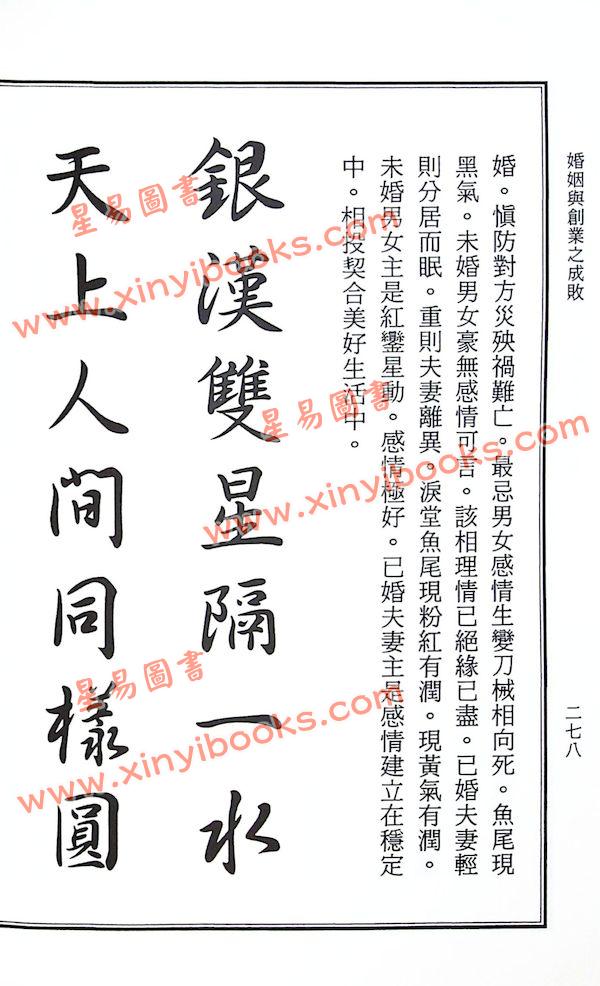 婚姻與創業之成敗
二七八
婚。慎防對方災殃禍難亡。最忌男女感情生變刀械相向死。魚尾現
黑氣。未婚男女豪無感情可言。該相理情已絕緣已盡。已婚夫妻輕
則分居而眠。重則夫妻離異。淚堂魚尾現粉紅有潤。現黃氣有潤。
未婚男女主是紅鑾星動。感情極好。已婚夫妻主是感情建立在穩定
中。相投契合美好生活中。
銀漢雙星隔一水
天上人間同樣圓
星易圖書
www.xinyibooks.com
星易圖書
www.xinyibooks.com
星易圖書
www.xinyibooks.com